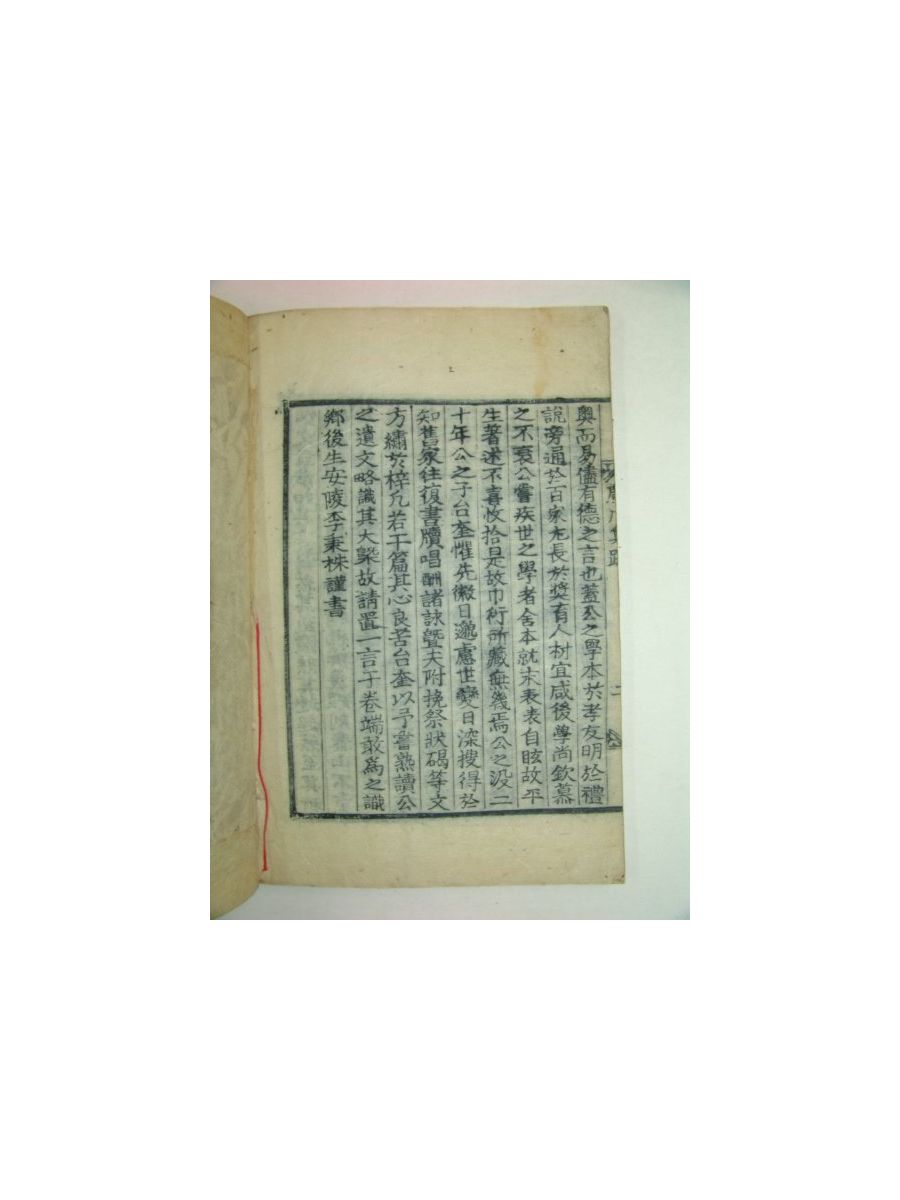 奧而易儘有德之言也蓋公之學本於孝友明於禮
說旁通於百家尤長於奬有人材宜咸後尊尚欽慕
之不衰公嘗疾世之學者舍本就末表表自眩故平
生著述不喜收拾是故巾衍所藏無幾焉公之沒二
十年公之子台奎懼先徽日邈慮世變日深搜得於
知舊家往復書牘唱酬諸詠曁夫附挽祭狀碣等文
方繡於梓凡若干篇其心良苦台奎以予嘗熟讀公
之遺文略識其大槩故請置一言于卷端敢爲之識
鄕後生安陵李秉株謹書